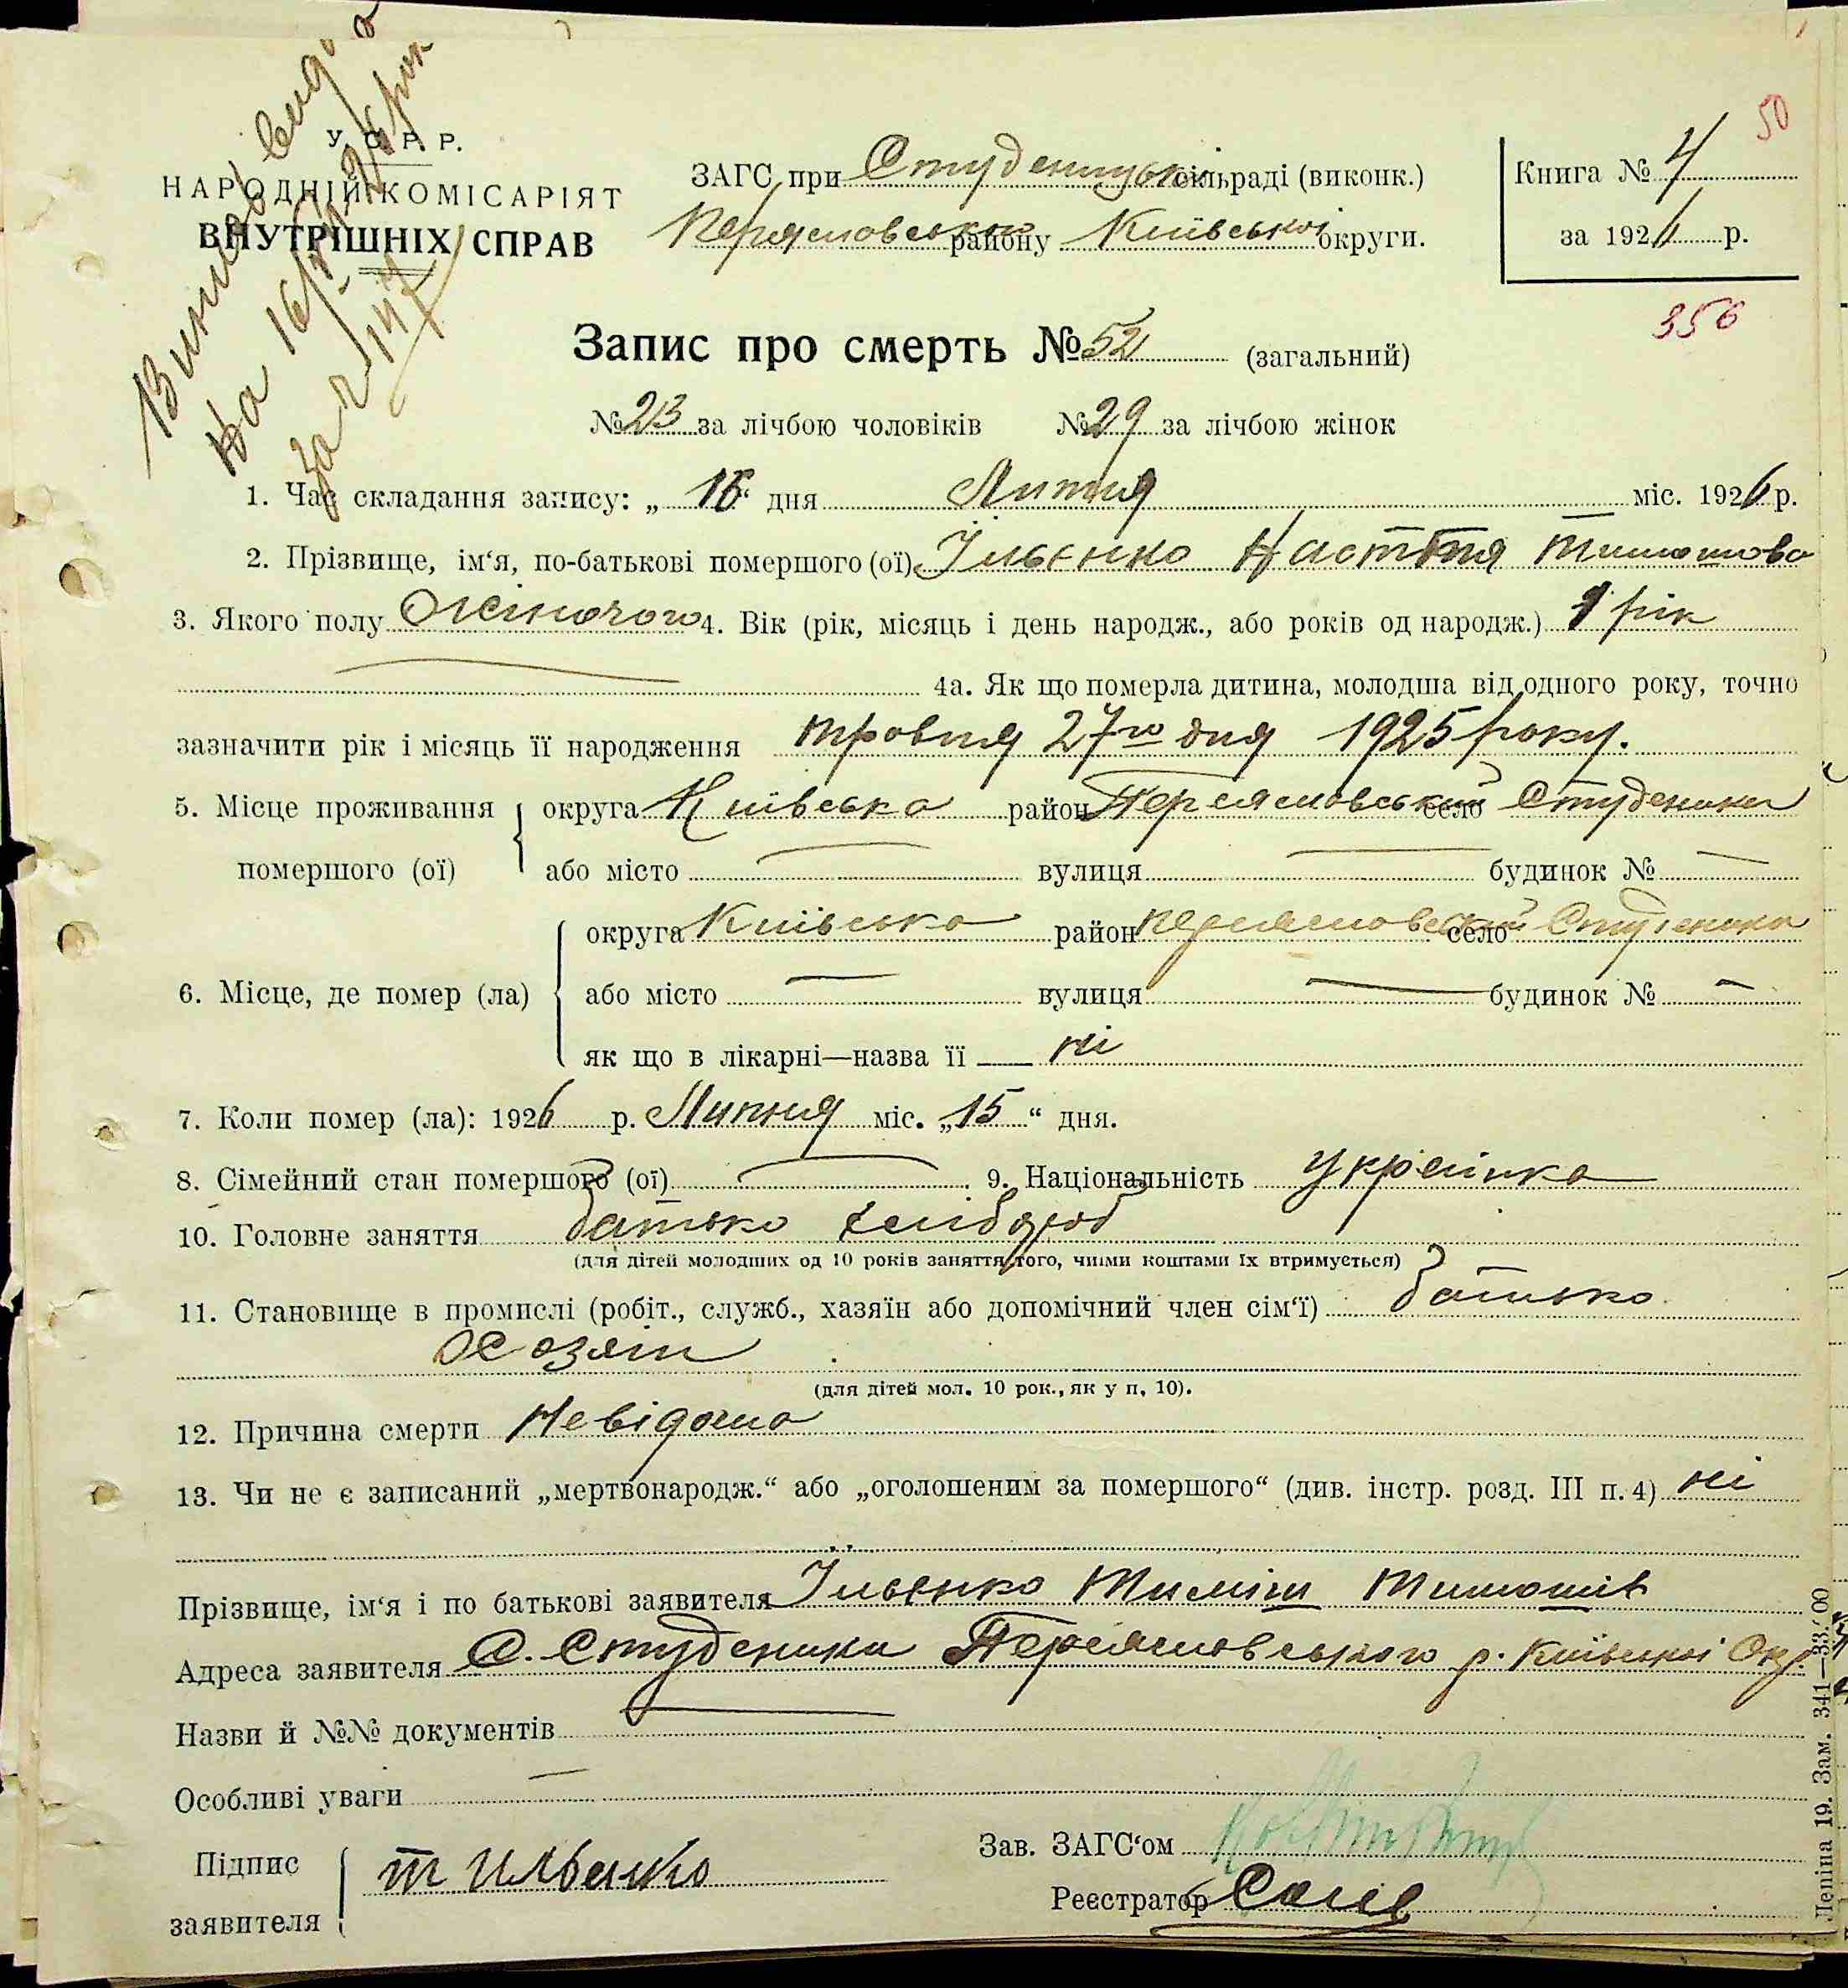 50
У. С. Р. Р.
НАРОДНІЙ КОМІСАРІЯТ
ВНУТРІШНІХ СПРАВ
ЗАГС при Студениській сільраді (виконк.)
району Київської округи.
Книга № 4
за 1926 р.
356
Запис про смерть № 52 (загальний)
№ 23 за лічбою чоловіків № 29 за лічбою жінок
1. Час складання запису: „ 16 “ дня Липня міс. 1926 р.
2. Прізвище, ім‘я, по-батькові помершого (ої) Ільєнко Настя Тимошова
3. Якого полу Жіночого 4. Вік (рік, місяць і день народж., або років од народж.) 1 рік
4а. Як що померла дитина, молодша від одного року, точно
зазначити рік і місяць її народження травня 27го дня 1925 року.
5. Місце проживання помершого (ої) округа Київська район Переяславський село Студеники
або місто — вулиця — будинок № —
6. Місце, де помер (ла) округа Київська район Переяславський село Студеники
або місто — вулиця — будинок № —
як що в лікарні—назва її — ні
7. Коли помер (ла): 1926 р. Липня міс. „ 15 “ дня.
8. Сімейний стан помершого (ої) — . 9. Національність Українка
10. Головне заняття батько хлібороб
(для дітей молодших од 10 років заняття того, чиїми коштами їх втримується)
11. Становище в промислі (робіт., служб., хазяїн або допомічний член сім‘ї) батько
хазяїн
(для дітей мол. 10 рок., як у п, 10).
12. Причина смерти Невідома
13. Чи не є записаний „мертвонародж.“ або „оголошеним за помершого“ (див. інстр. розд. III п. 4) ні
Прізвище, ім‘я і по батькові заявителя Ільєнко Тиміш Тимошів
Адреса заявителя С. Студеники Переяславського р. Київської Окр.
Назви й №№ документів —
Особливі уваги —
Підпис заявителя т Ильенко
Зав. ЗАГС‘ом
Реєстратор
Леніна 19. Зам. 341—33.000